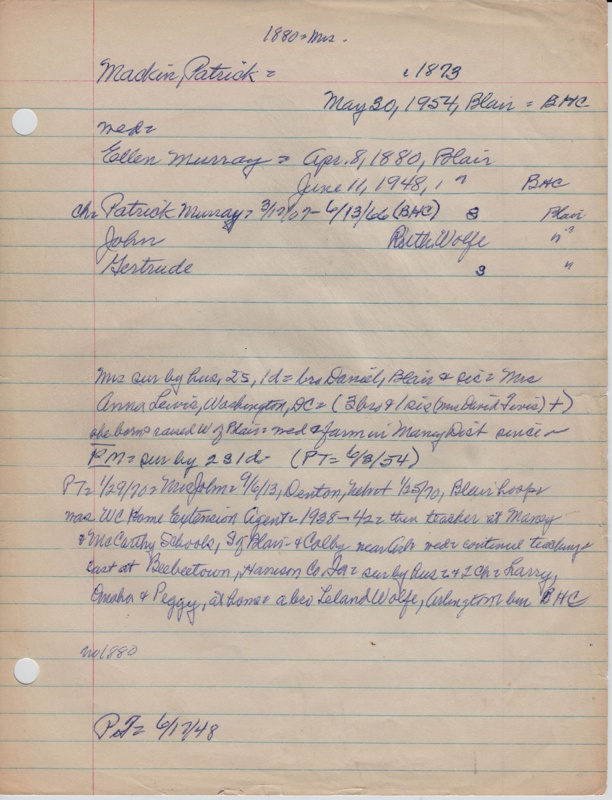 1880 = Mrs.
Mackin, Patrick = c 1873
May 30, 1954, Blair = BHC
med =
Ellen Murray = Apr. 8, 1880, Blair
June 11, 1948, " BHC
ch = Patrick Murray = 3/17/07 - 6/13/66 (BHC) 3 Blair
John Ruth Wolfe "
Gertrude 3 "
Mrs sur by hus, 2s, 1d = bro Daniel, Blair & sis = Mrs
Anna Lewis, Washington, DC = (3 bro & 1 sis (Mrs David ) +)
she born & raised W of Blair = med & farm in Maney Dist since
PM = sur by 2s 1d (PT = 6/3/54)
PT = 1/29/70 = Mrs John = 9/6/13, Denton, 1/25/70, Blair hosp =
was WC Home Extension Agent = 1938 - 42 = then teacher at Maney
& McCarthy Schools, S of Blair & Colby near med = continue teaching =
last at Beebeetown, Harrison Co. Ia = sur by hus = & 2 ch = Larry,
Omaha & Peggy, at home = a bro Leland Wolfe, Arlington = bur BHC
no 1880
P&T = 6/17/48